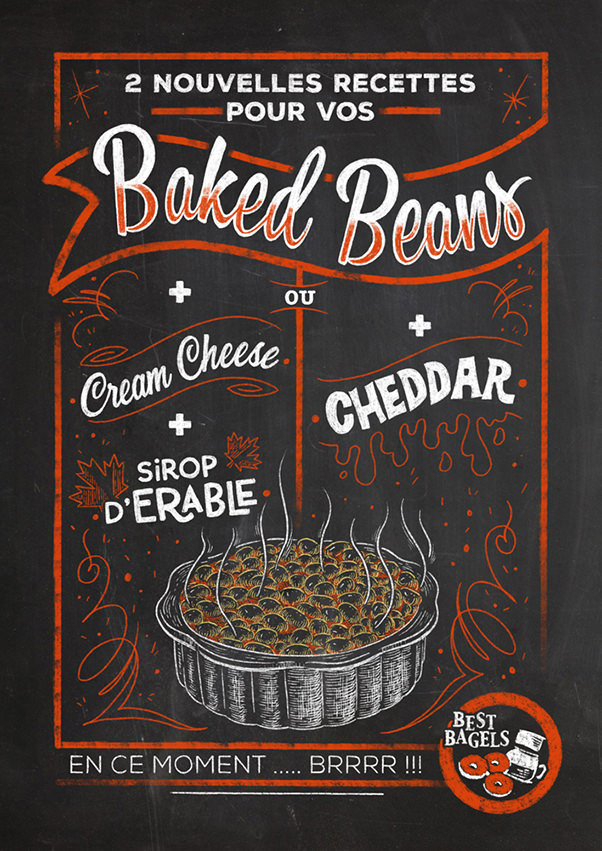 2 NOUVELLES RECETTES
POUR VOS
Baked Beans
+
Cream Cheese
+
SiROP
D'ERABLE
OU
+
CHEDDAR
BEST
BAGELS
EN CE MOMENT ..... BRRRR !!!